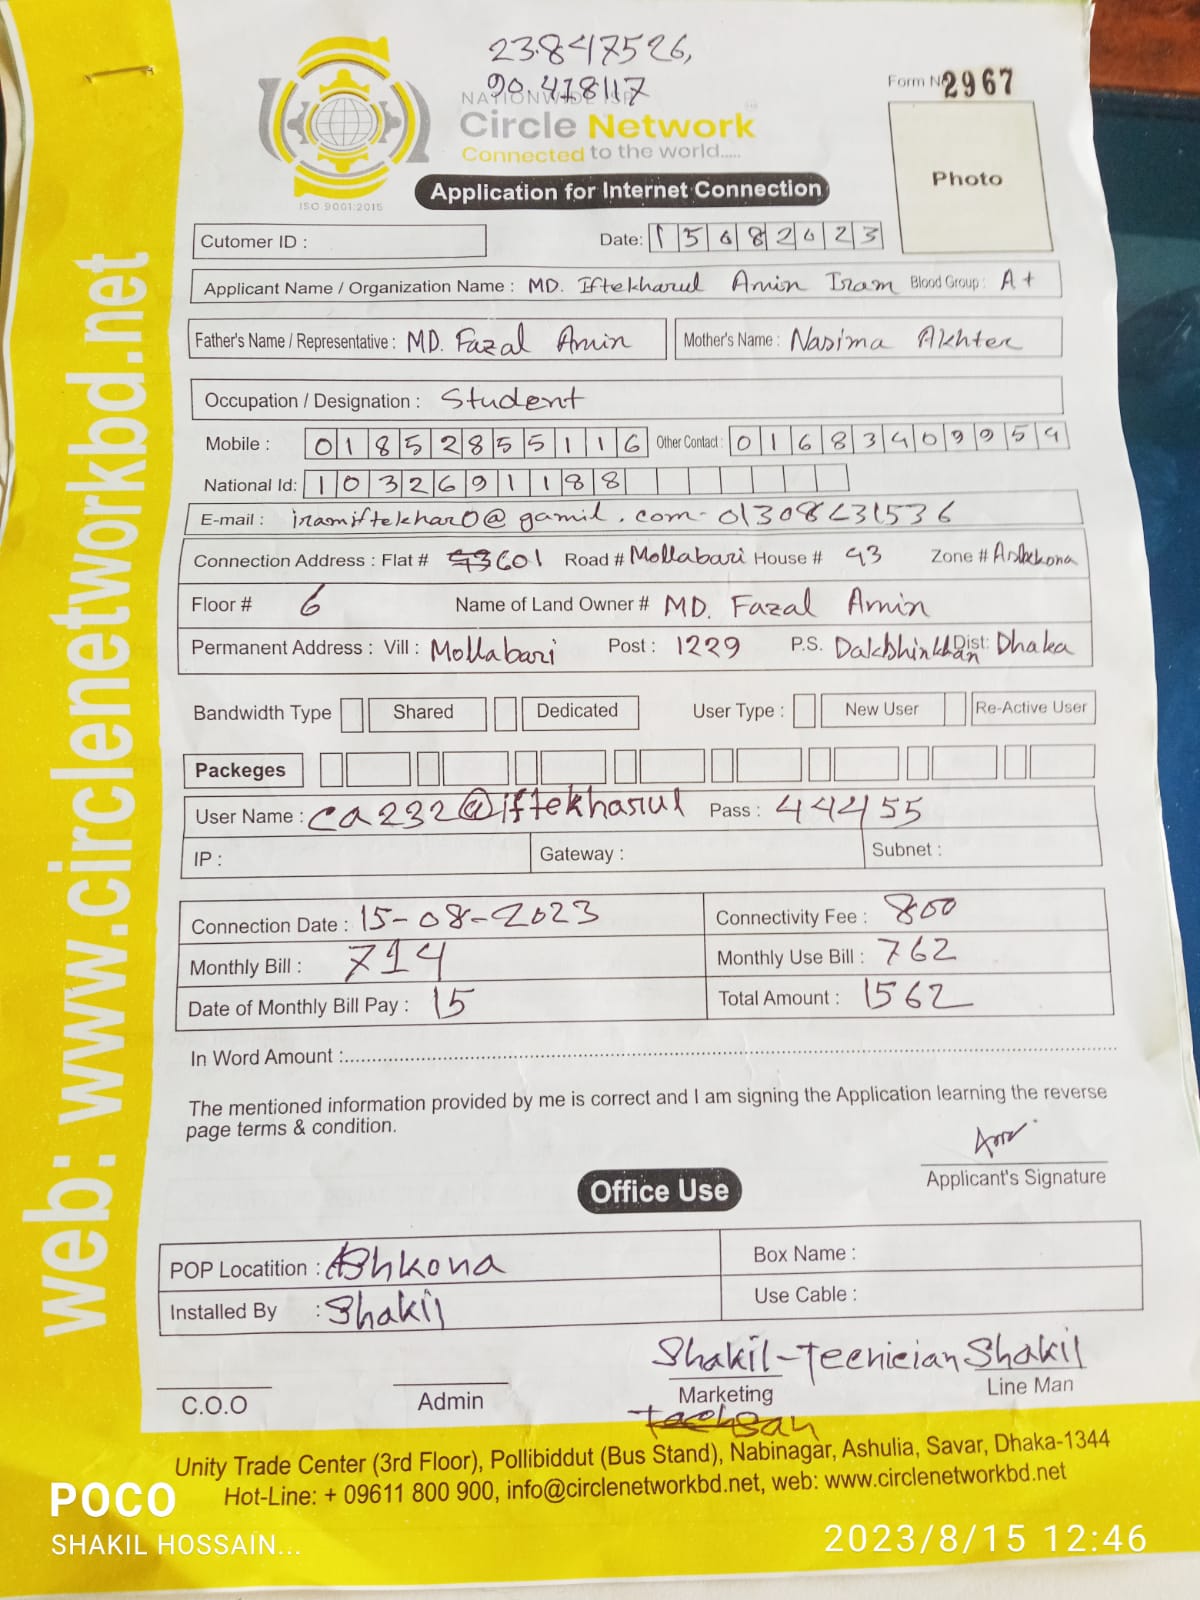 23.847526,
90.418117
Form No 2967
NATIONWIDE ISP
Circle Network
Connected to the world.....
ISO 9001:2015
Application for Internet Connection
Photo
Cutomer ID :
Date: 15082023
Applicant Name / Organization Name : MD. Iftekharul Amin Iram Blood Group : A+
Father's Name / Representative : MD. Fazal Amin Mother's Name : Nasima Akhter
Occupation / Designation : Student
Mobile : 01852855116 Other Contact : 01683409954
National Id: 1032691188
E-mail : iramiftekhar0@gamil.com-01308631536
Connection Address : Flat # 601 Road # Mollabari House # 93 Zone # Ashkona
Floor # 6 Name of Land Owner # MD. Fazal Amin
Permanent Address : Vill : Mollabari Post : 1229 P.S. Dakshinkhan Dist: Dhaka
Bandwidth Type Shared Dedicated User Type : New User Re-Active User
Packeges
User Name : ca232@iftekharul Pass : 44455
IP : Gateway : Subnet :
Connection Date : 15-08-2023 Connectivity Fee : 800
Monthly Bill : 714 Monthly Use Bill : 762
Date of Monthly Bill Pay : 15 Total Amount : 1562
In Word Amount :
The mentioned information provided by me is correct and I am signing the Application learning the reverse
page terms & condition.
Applicant's Signature
Office Use
POP Locatition : Ashkona Box Name :
Installed By : Shakil Use Cable :
Shakil-Tecnician Shakil
C.O.O Admin Marketing Line Man
Unity Trade Center (3rd Floor), Pollibiddut (Bus Stand), Nabinagar, Ashulia, Savar, Dhaka-1344
Hot-Line: + 09611 800 900, info@circlenetworkbd.net, web: www.circlenetworkbd.net
web: www.circlenetworkbd.net
POCO
SHAKIL HOSSAIN...
2023/8/15 12:46